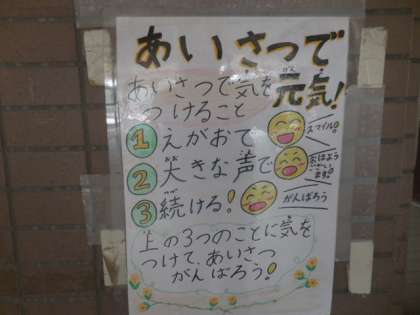 あいさつで
元気!
あいさつで気を
つけること
1 えがおで
スマイル!
2 大きな声で
おはよう
ござい
ます!
3 続ける!
がんばろう
上の3つのことに気を
つけて、あいさつ
がんばろう!